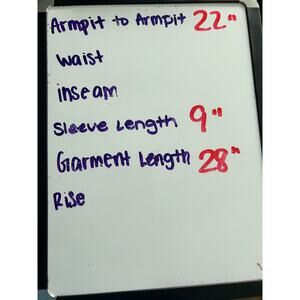 Armpit to Armpit 22"
waist
inseam
Sleeve Length 9"
Garment Length 28"
Rise